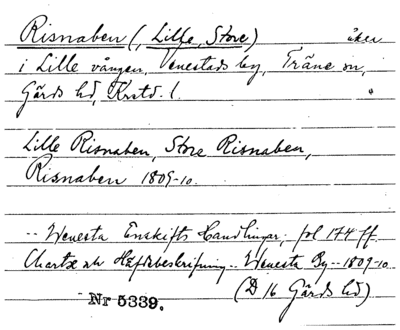 Risnaben (, Lille, Store) åker
i Lille vången, Venestads by, Träne sn,
Gärds hd, Krstd. l. "
Lille Risnaben, Store Risnaben,
Risnaben 1809-10.
-- Wenesta Enskifts Handlingar, fol 174 ff.
Chartæ och Häfdebeskrifning -- Wenesta By -- 1809-10
(D 16 Gärds hd)
Nr 5339.